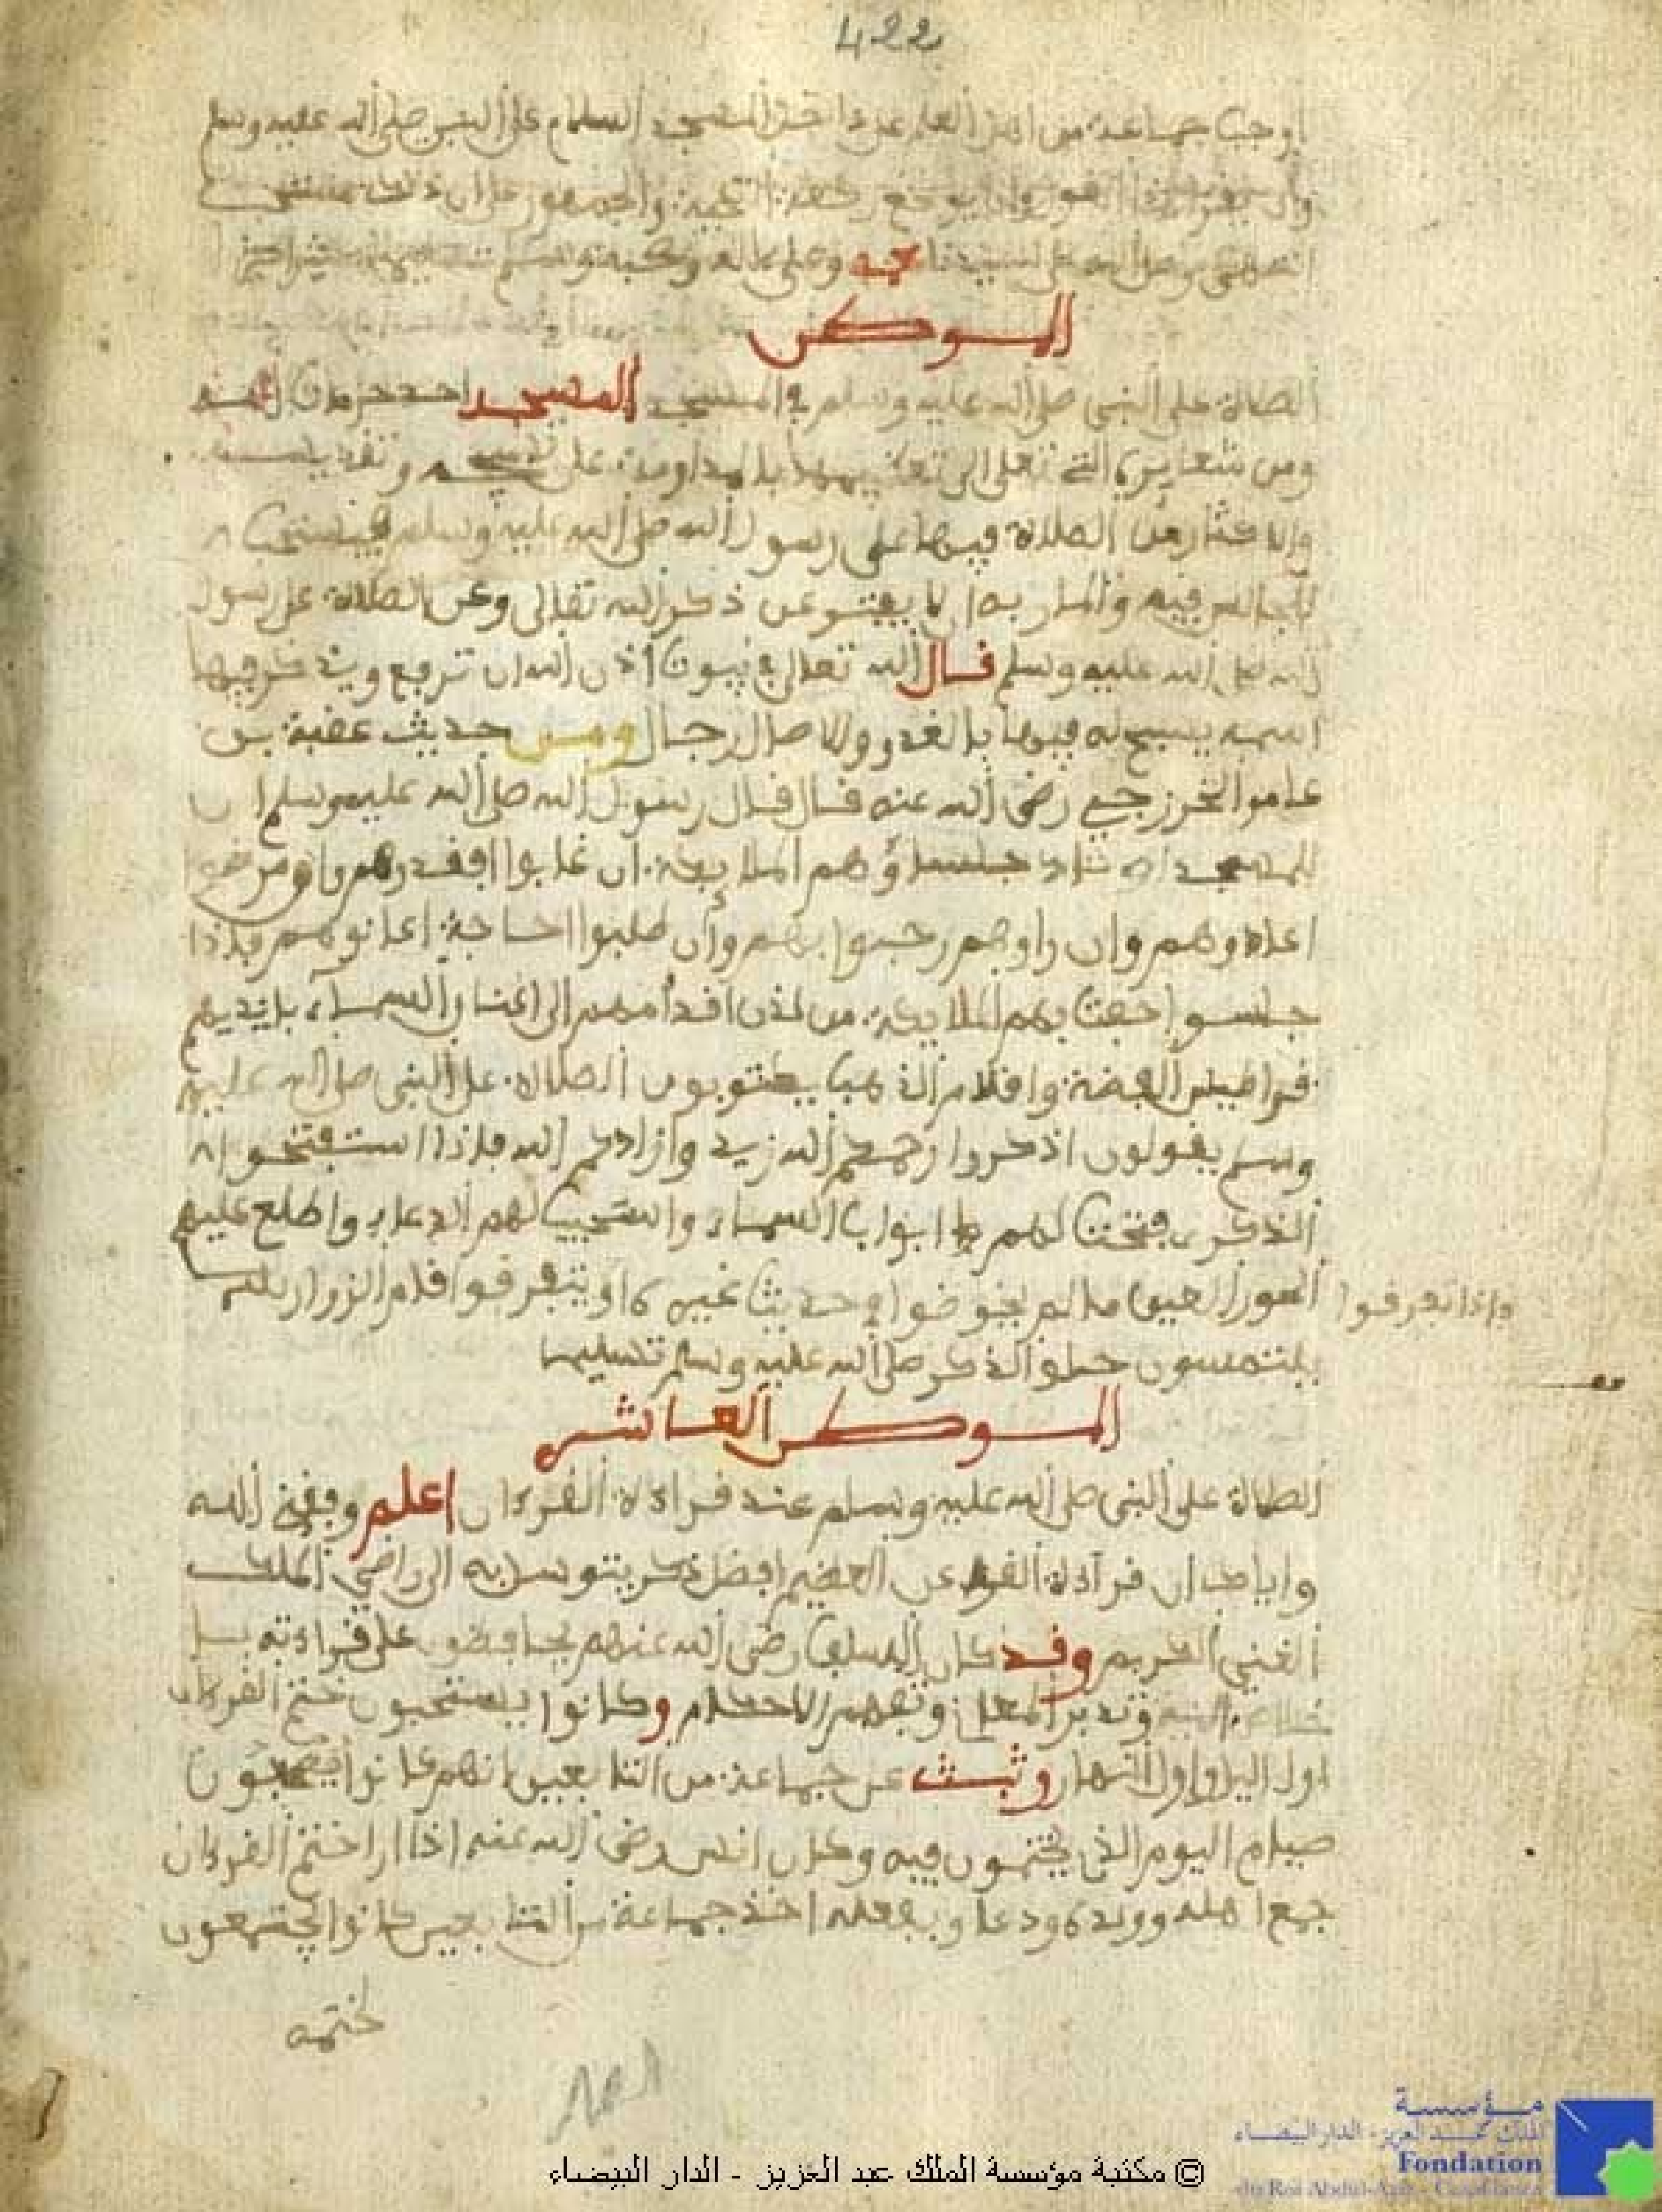 422
اوجب جماعة من اهل العلم على داخل المسجد السلام على النبي صلى الله عليه وسلم
وان ذلك مستحب
وصلى الله على سيدنا محمد وعلى ءاله وصحبه وسلم تسليما
الموطن
الصلاة على النبي صلى الله عليه وسلم في المسجد المسجد احد حرمات الله
ومن شعايره التي تعظيمها بالمداومة على وتقديسه
والاكثار من الصلاة فيها على رسول الله صلى الله عليه وسلم فيستحب
للجالس فيه والمار به ا لا يفتر عن ذكر الله تعالى وعن الصلاة على رسول
الله صلى الله عليه وسلم قال الله تعالى في بيوت اذن الله ان ترفع ويذكر فيها
اسمه يسبح له فيها بالغدو والاصال رجال ومن حديث عقبة بن
عامر الخزرجي رضي الله عنه قال قال رسول الله صلى الله عليه وسلم ان
للمسجد اوتادا جلساؤهم الملايكة ان غابوا افقدوهم وان مرضوا
اعادوهم وان راوهم رحبوا بهم وان طلبوا حاجة اعانوهم فاذا
جلسوا حفت بهم الملايكة من لدن اقدامهم الى اعنان السماء بايديهم
قراطيس الفضة واقلام الذهب يكتوبون الصلاة على النبي صلى الله عليه
وسلم يقولون اذكروا رحمكم الله زيدوا زادكم الله فاذا استفتحوا
الذكر فتحت لهم ابواب السماء واستجيب لهم الدعاء واطلع عليهم
الحور العين ما لم يخوضوا في حديث غيره او يتفرقوا قام الزوار
واذا تفرقوا
يلتمسون حلق الذكر صلى الله عليه وسلم تسليما
الموطن العاشر
الصلاة على النبي صلى الله عليه وسلم عند قراءة القرءان اعلم وفقني الله
واياك ان قراءة القرءان العظيم افضل ذكر يتوسل به الى رضى الملك
الغني الكريم وقد كان السلف رضي الله عنهم يحافظون على قراءته
النية وتدبر المعاني وتفهم الاحكام وكانوا يستحبون ختم القرءان
اول اليل واول النهار وثبت عن جماعة من التابعين انهم كانوا يحبون
صيام اليوم الذي يختمون فيه وكان انس رضي الله عنه اذا اراد ختم القرءان
جمع اهله وولده ودعا وبفعله اخذ جماعة من التابعين كانوا يجتمعون
ختمه
© مكتبة مؤسسة الملك عبد العزيز - الدار البيضاء
مؤسسة
الملك عبد العزيز - الدار البيضاء
Fondation
du Roi Abdul-Aziz - Casablanca